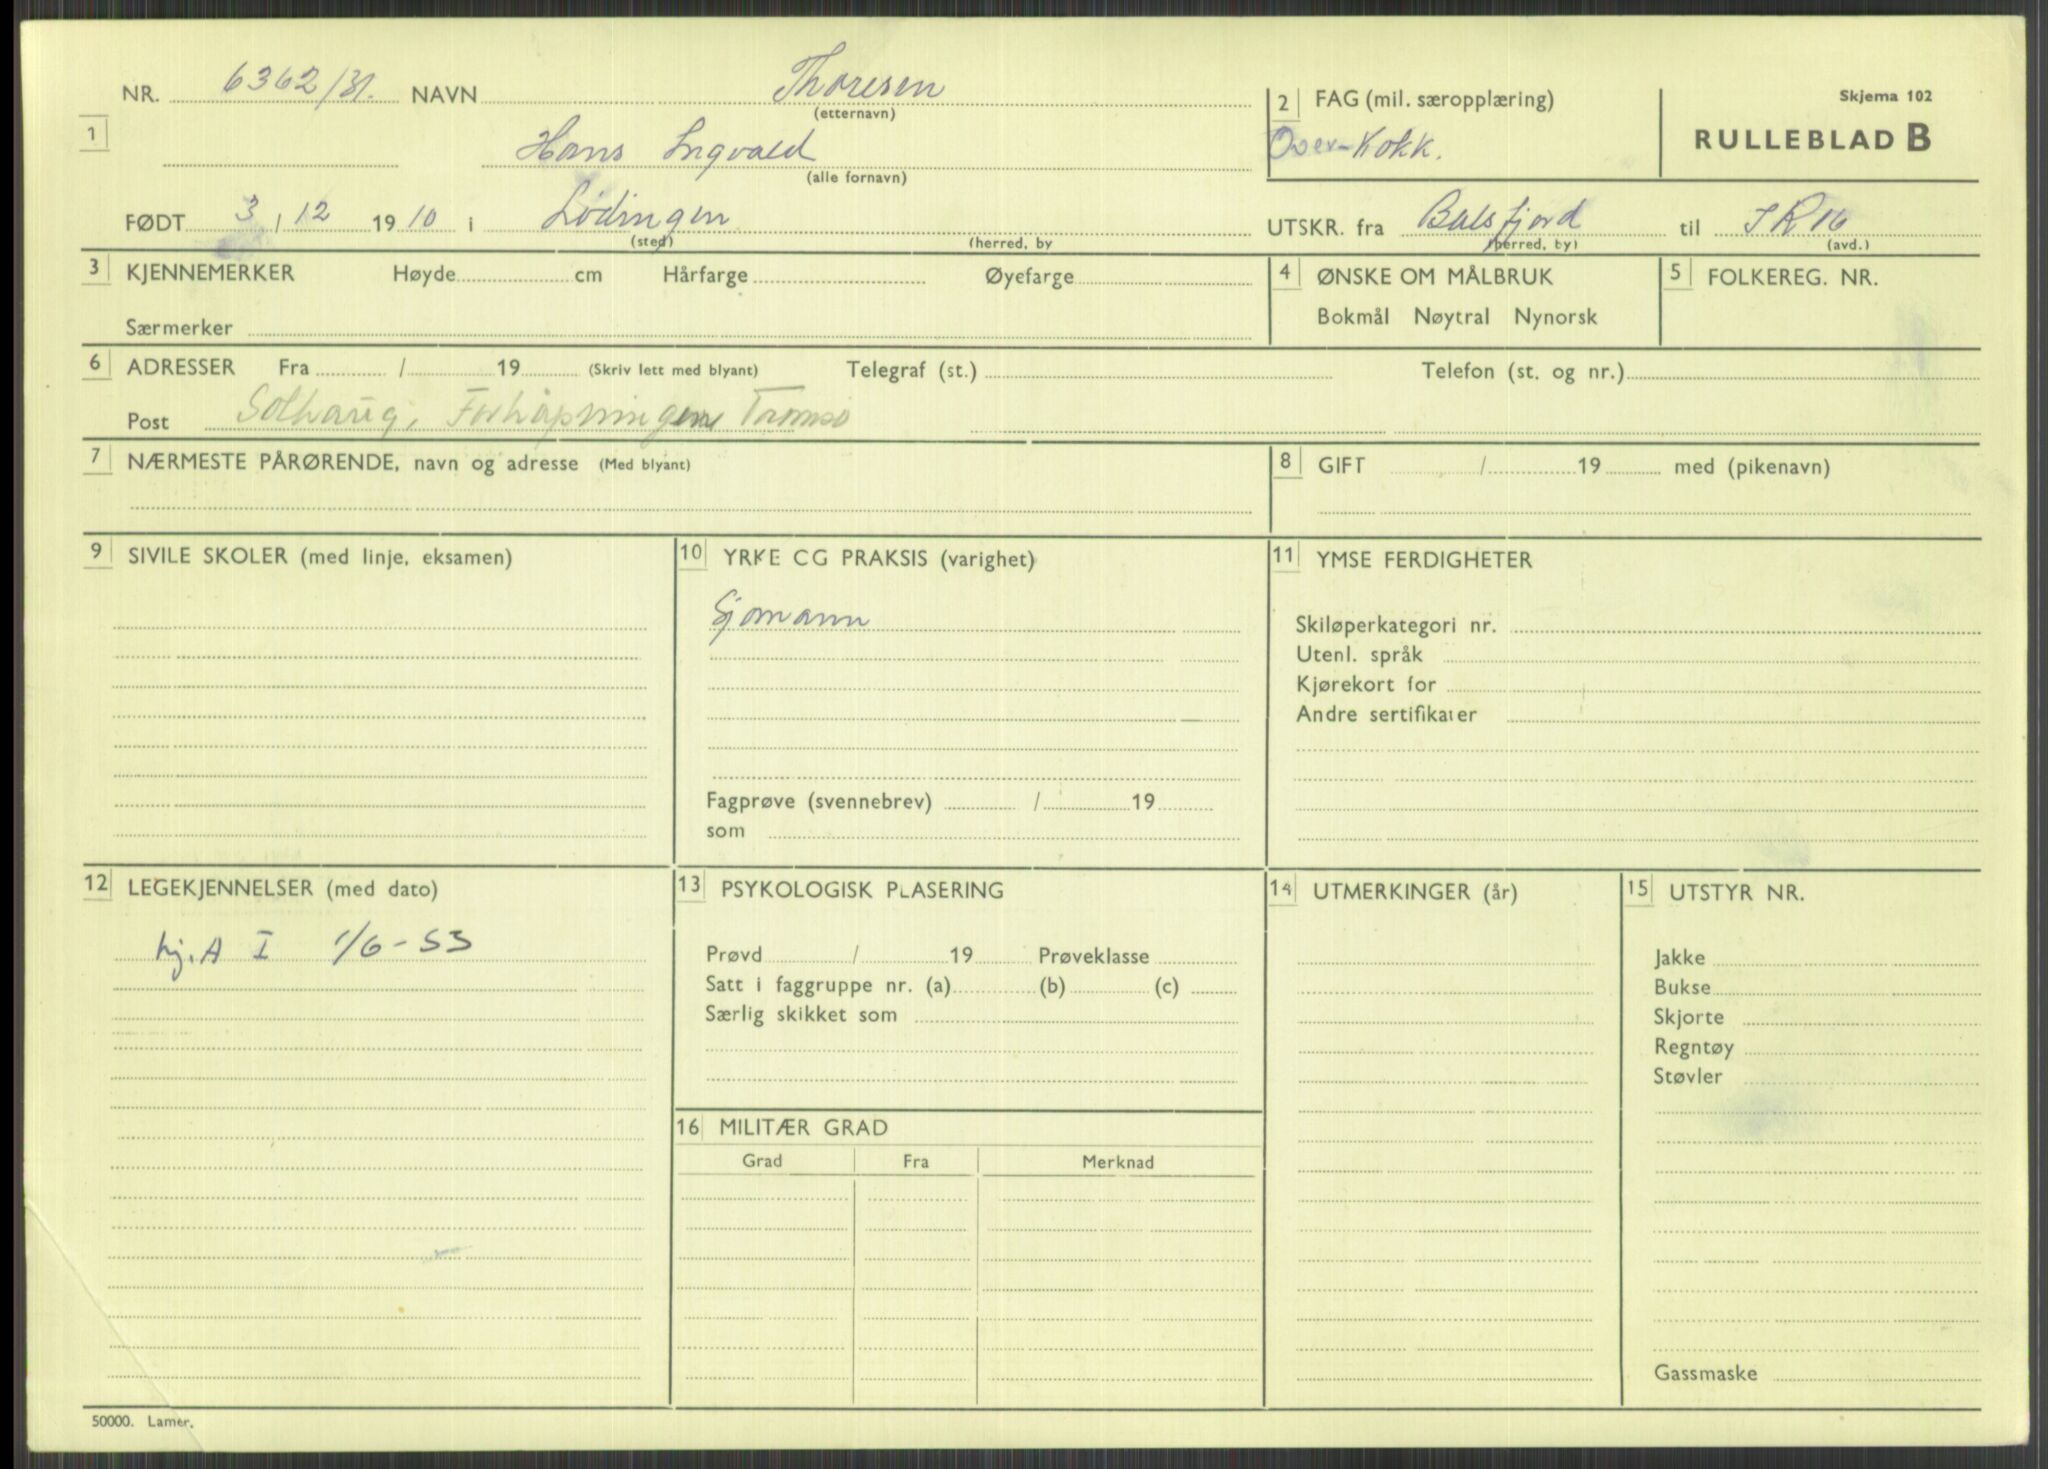 NR. 6362/31. NAVN Thoresen
(etternavn)
1
Hans Ingvald
(alle fornavn)
FØDT 3 / 12 1910 i Lødingen
(sted) (herred, by
2 FAG (mil. særopplæring)
Over-Kokk.
Skjema 102
RULLEBLAD B
UTSKR. fra Balsfjord til IR16
(herred, by) (avd.)
3 KJENNEMERKER Høyde cm Hårfarge Øyefarge
Særmerker
4 ØNSKE OM MÅLBRUK
Bokmål Nøytral Nynorsk
5 FOLKEREG. NR.
6 ADRESSER Fra / 19 (Skriv lett med blyant) Telegraf (st.) Telefon (st. og nr.)
Post Solhaug, Forhåpningen Tromsø
7 NÆRMESTE PÅRØRENDE, navn og adresse (Med blyant)
8 GIFT / 19 med (pikenavn)
9 SIVILE SKOLER (med linje, eksamen)
10 YRKE CG PRAKSIS (varighet)
Sjømann
Fagprøve (svennebrev) / 19
som
11 YMSE FERDIGHETER
Skiløperkategori nr.
Utenl. språk
Kjørekort for
Andre sertifikater
12 LEGEKJENNELSER (med dato)
kj. A I 1/6-53
13 PSYKOLOGISK PLASERING
Prøvd / 19 Prøveklasse
Satt i faggruppe nr. (a) (b) (c)
Særlig skikket som
14 UTMERKINGER (år)
15 UTSTYR NR.
Jakke
Bukse
Skjorte
Regntøy
Støvler
Gassmaske
16 MILITÆR GRAD
Grad Fra Merknad
50000. Lamer.